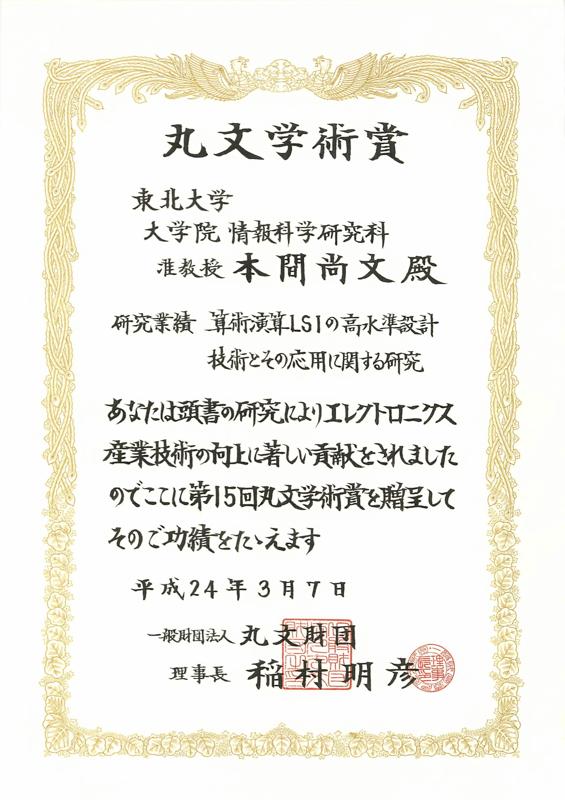 丸文学術賞
東北大学
大学院 情報科学研究科
准教授 本間尚文殿
研究業績 算術演算LSIの高水準設計
技術とその応用に関する研究
あなたは頭書の研究によりエレクトロニクス
産業技術の向上に著しい貢献をされました
のでここに第15回丸文学術賞を贈呈して
そのご功績をたゝえます
平成24年3月7日
一般財団法人 丸文財団
理事長 稲村明彦